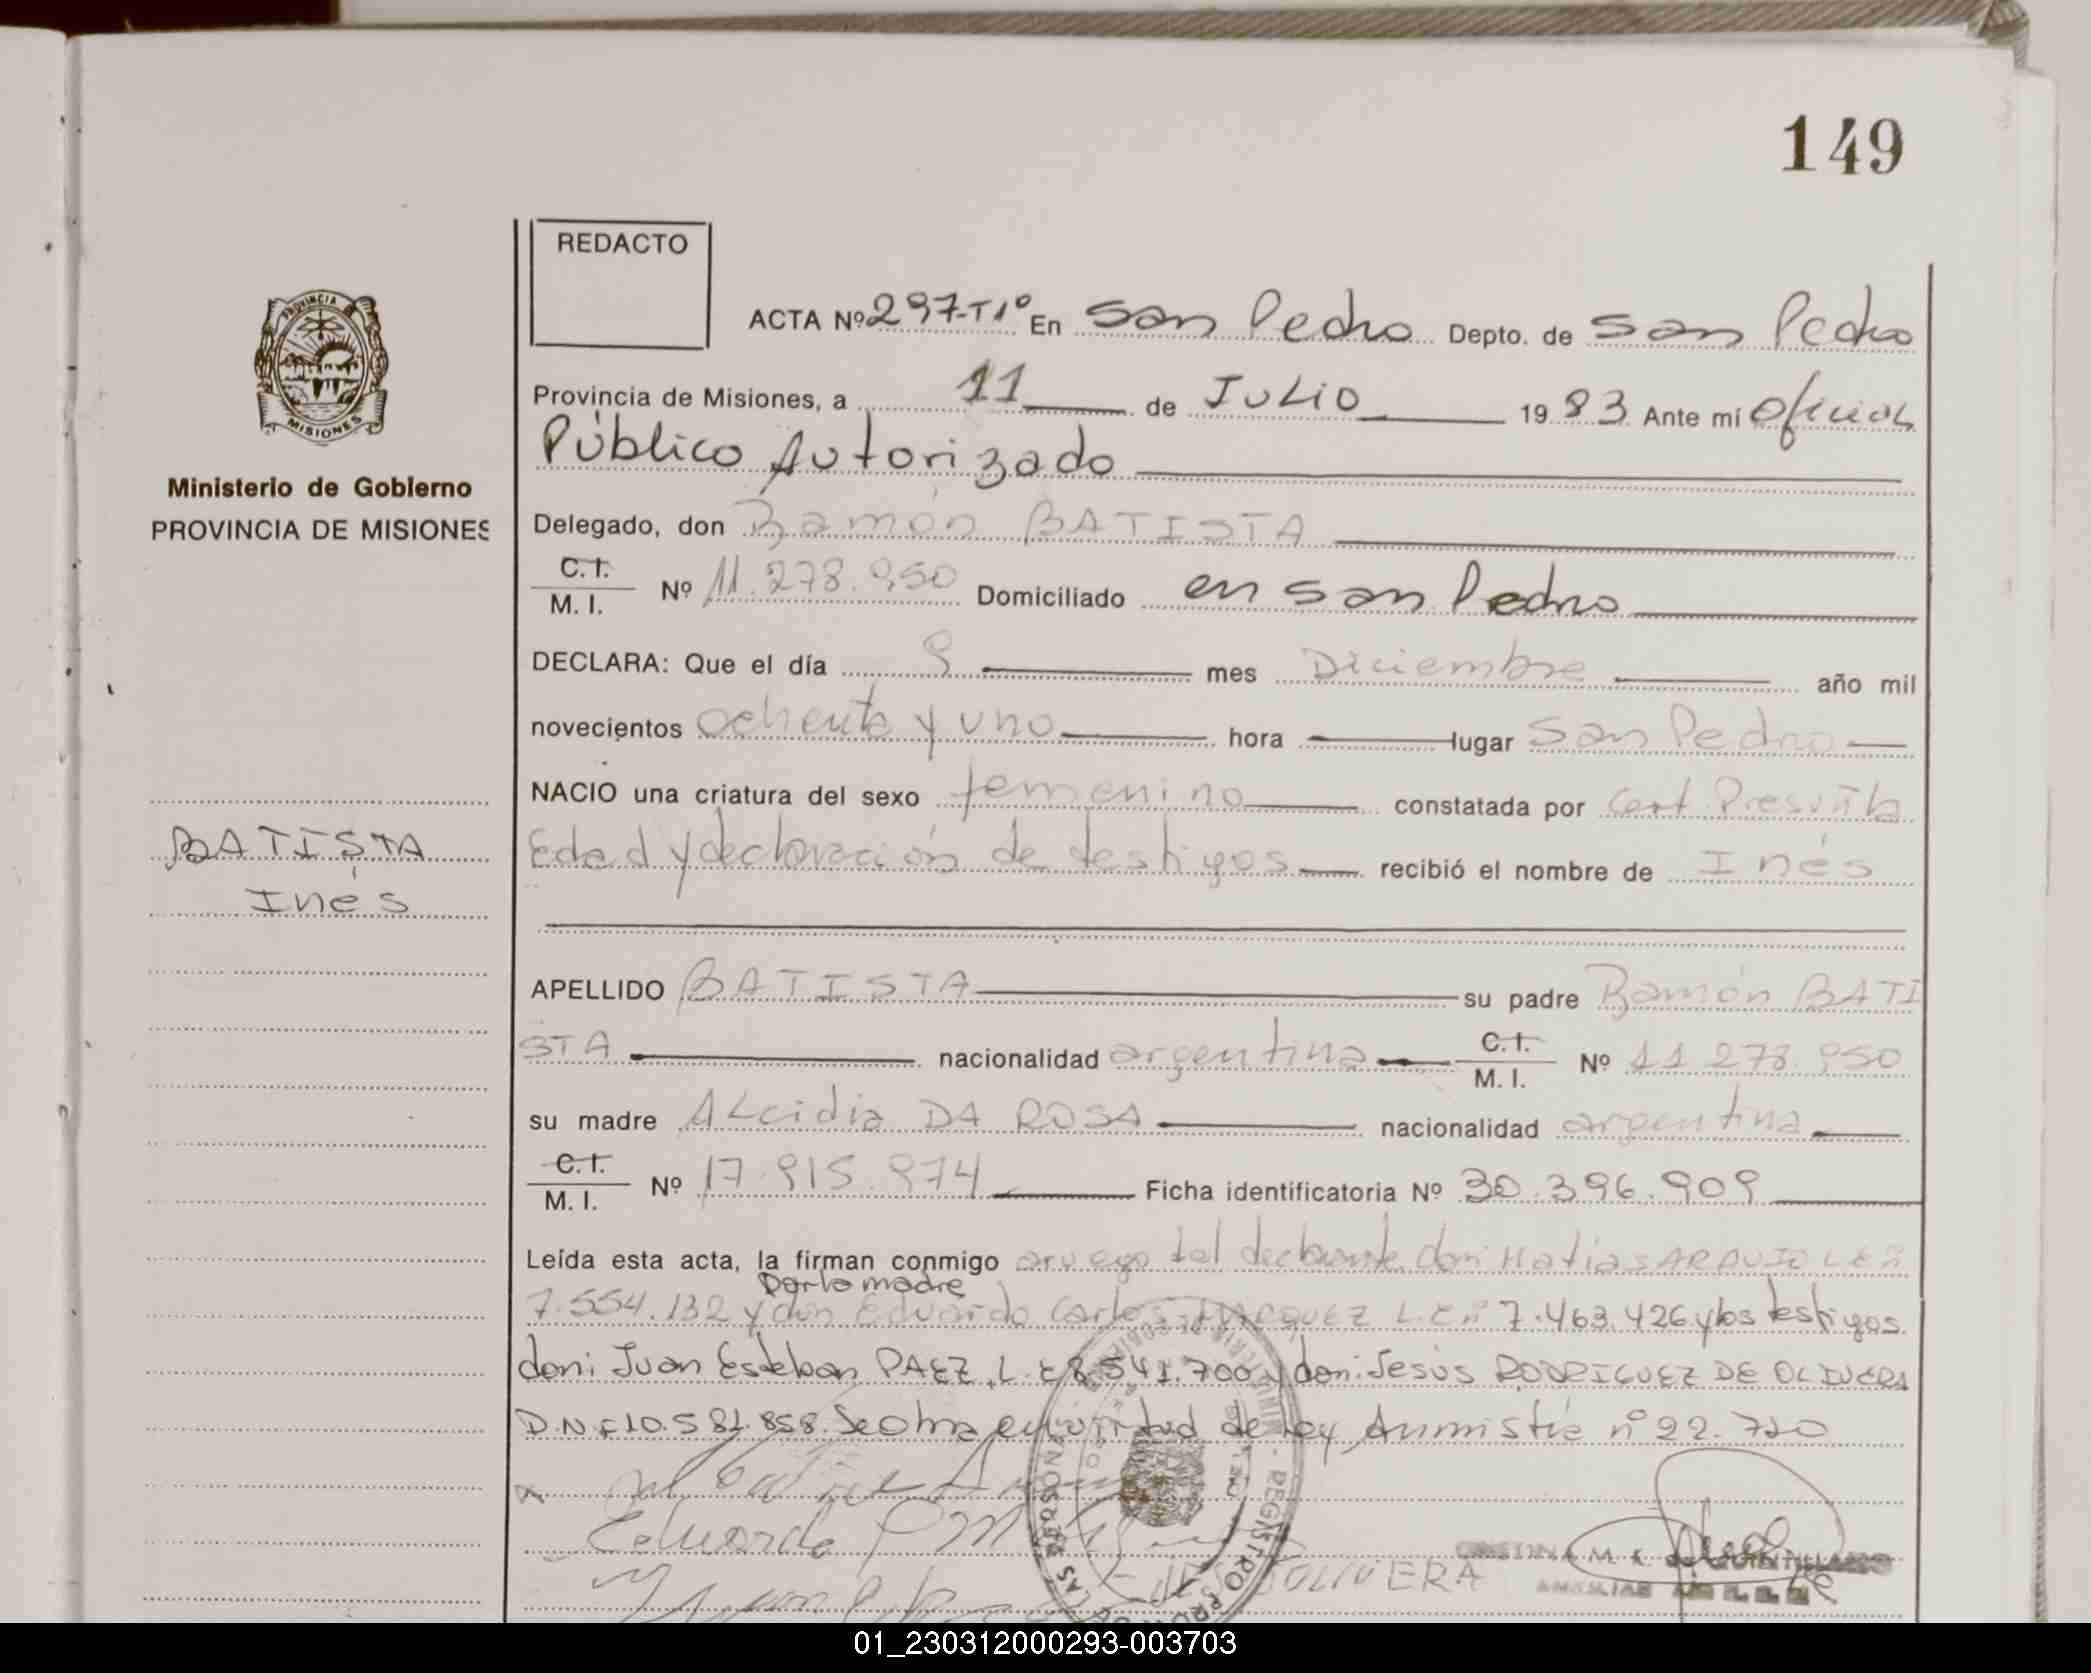 149
REDACTO
ACTA Nº 297-T1º En San Pedro Depto. de San Pedro
Provincia de Misiones, a 11 de JULIO 19 83 Ante mí oficial
Público Autorizado
PROVINCIA
MISIONES
Ministerio de Gobierno
PROVINCIA DE MISIONES
Delegado, don Ramón BATISTA
C.I.
M. I. Nº 11.278.950 Domiciliado en San Pedro
DECLARA: Que el día 9 mes Diciembre año mil
novecientos ochenta y uno hora lugar San Pedro
NACIO una criatura del sexo femenino constatada por Cert Presunta
Edad y declaración de testigos recibió el nombre de Inés
BATISTA
Inés
APELLIDO BATISTA su padre Ramón BATI
STA nacionalidad argentina C.I. M. I. Nº 11 278.950
su madre ALcidia DA ROSA nacionalidad argentina
C.I.
M. I. Nº 17.915.974 Ficha identificatoria Nº 30.396.909
Leída esta acta, la firman conmigo a ruego del declarante don Matias ARAUJO L E nº
por la madre
7.554.132 y don Eduardo Carlos MARQUEZ L.E nº 7.463.426 y los testigos
don: Juan Esteban PAEZ L.E 8.541.700 y don: Jesús RODRIGUEZ DE OLIVERA
D.N.I 10.581.858. Se obra en virtud de ley Amnistía nº 22.710
Eduardo
OLIVERA
01_230312000293-003703